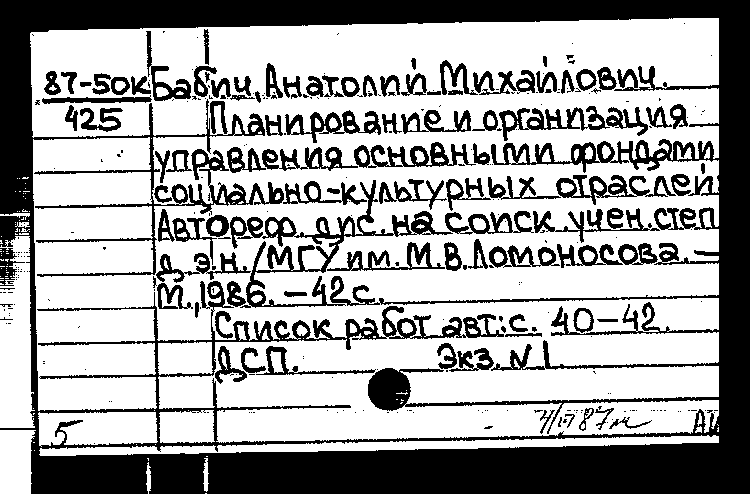 87-50к Бабич, Анатолий Михайлович.
425 Планирование и организация
управления основными фондами
социально-культурных отраслей:
Автореф. дис. на соиск. учен. степ
д. э. н. / МГУ им. М. В. Ломоносова. –
М., 1986. – 42 с.
Список работ авт.: с. 40–42.
ДСП. Экз. N 1.
5